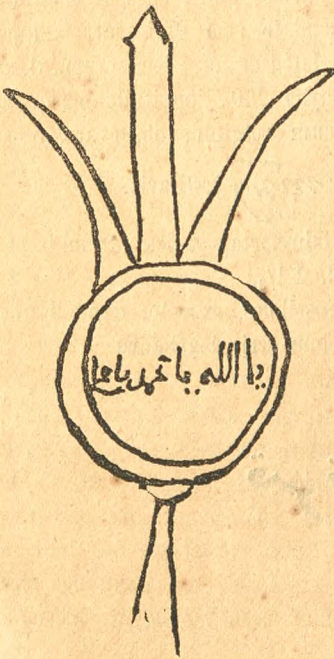 يا الله يا محمد يا علي